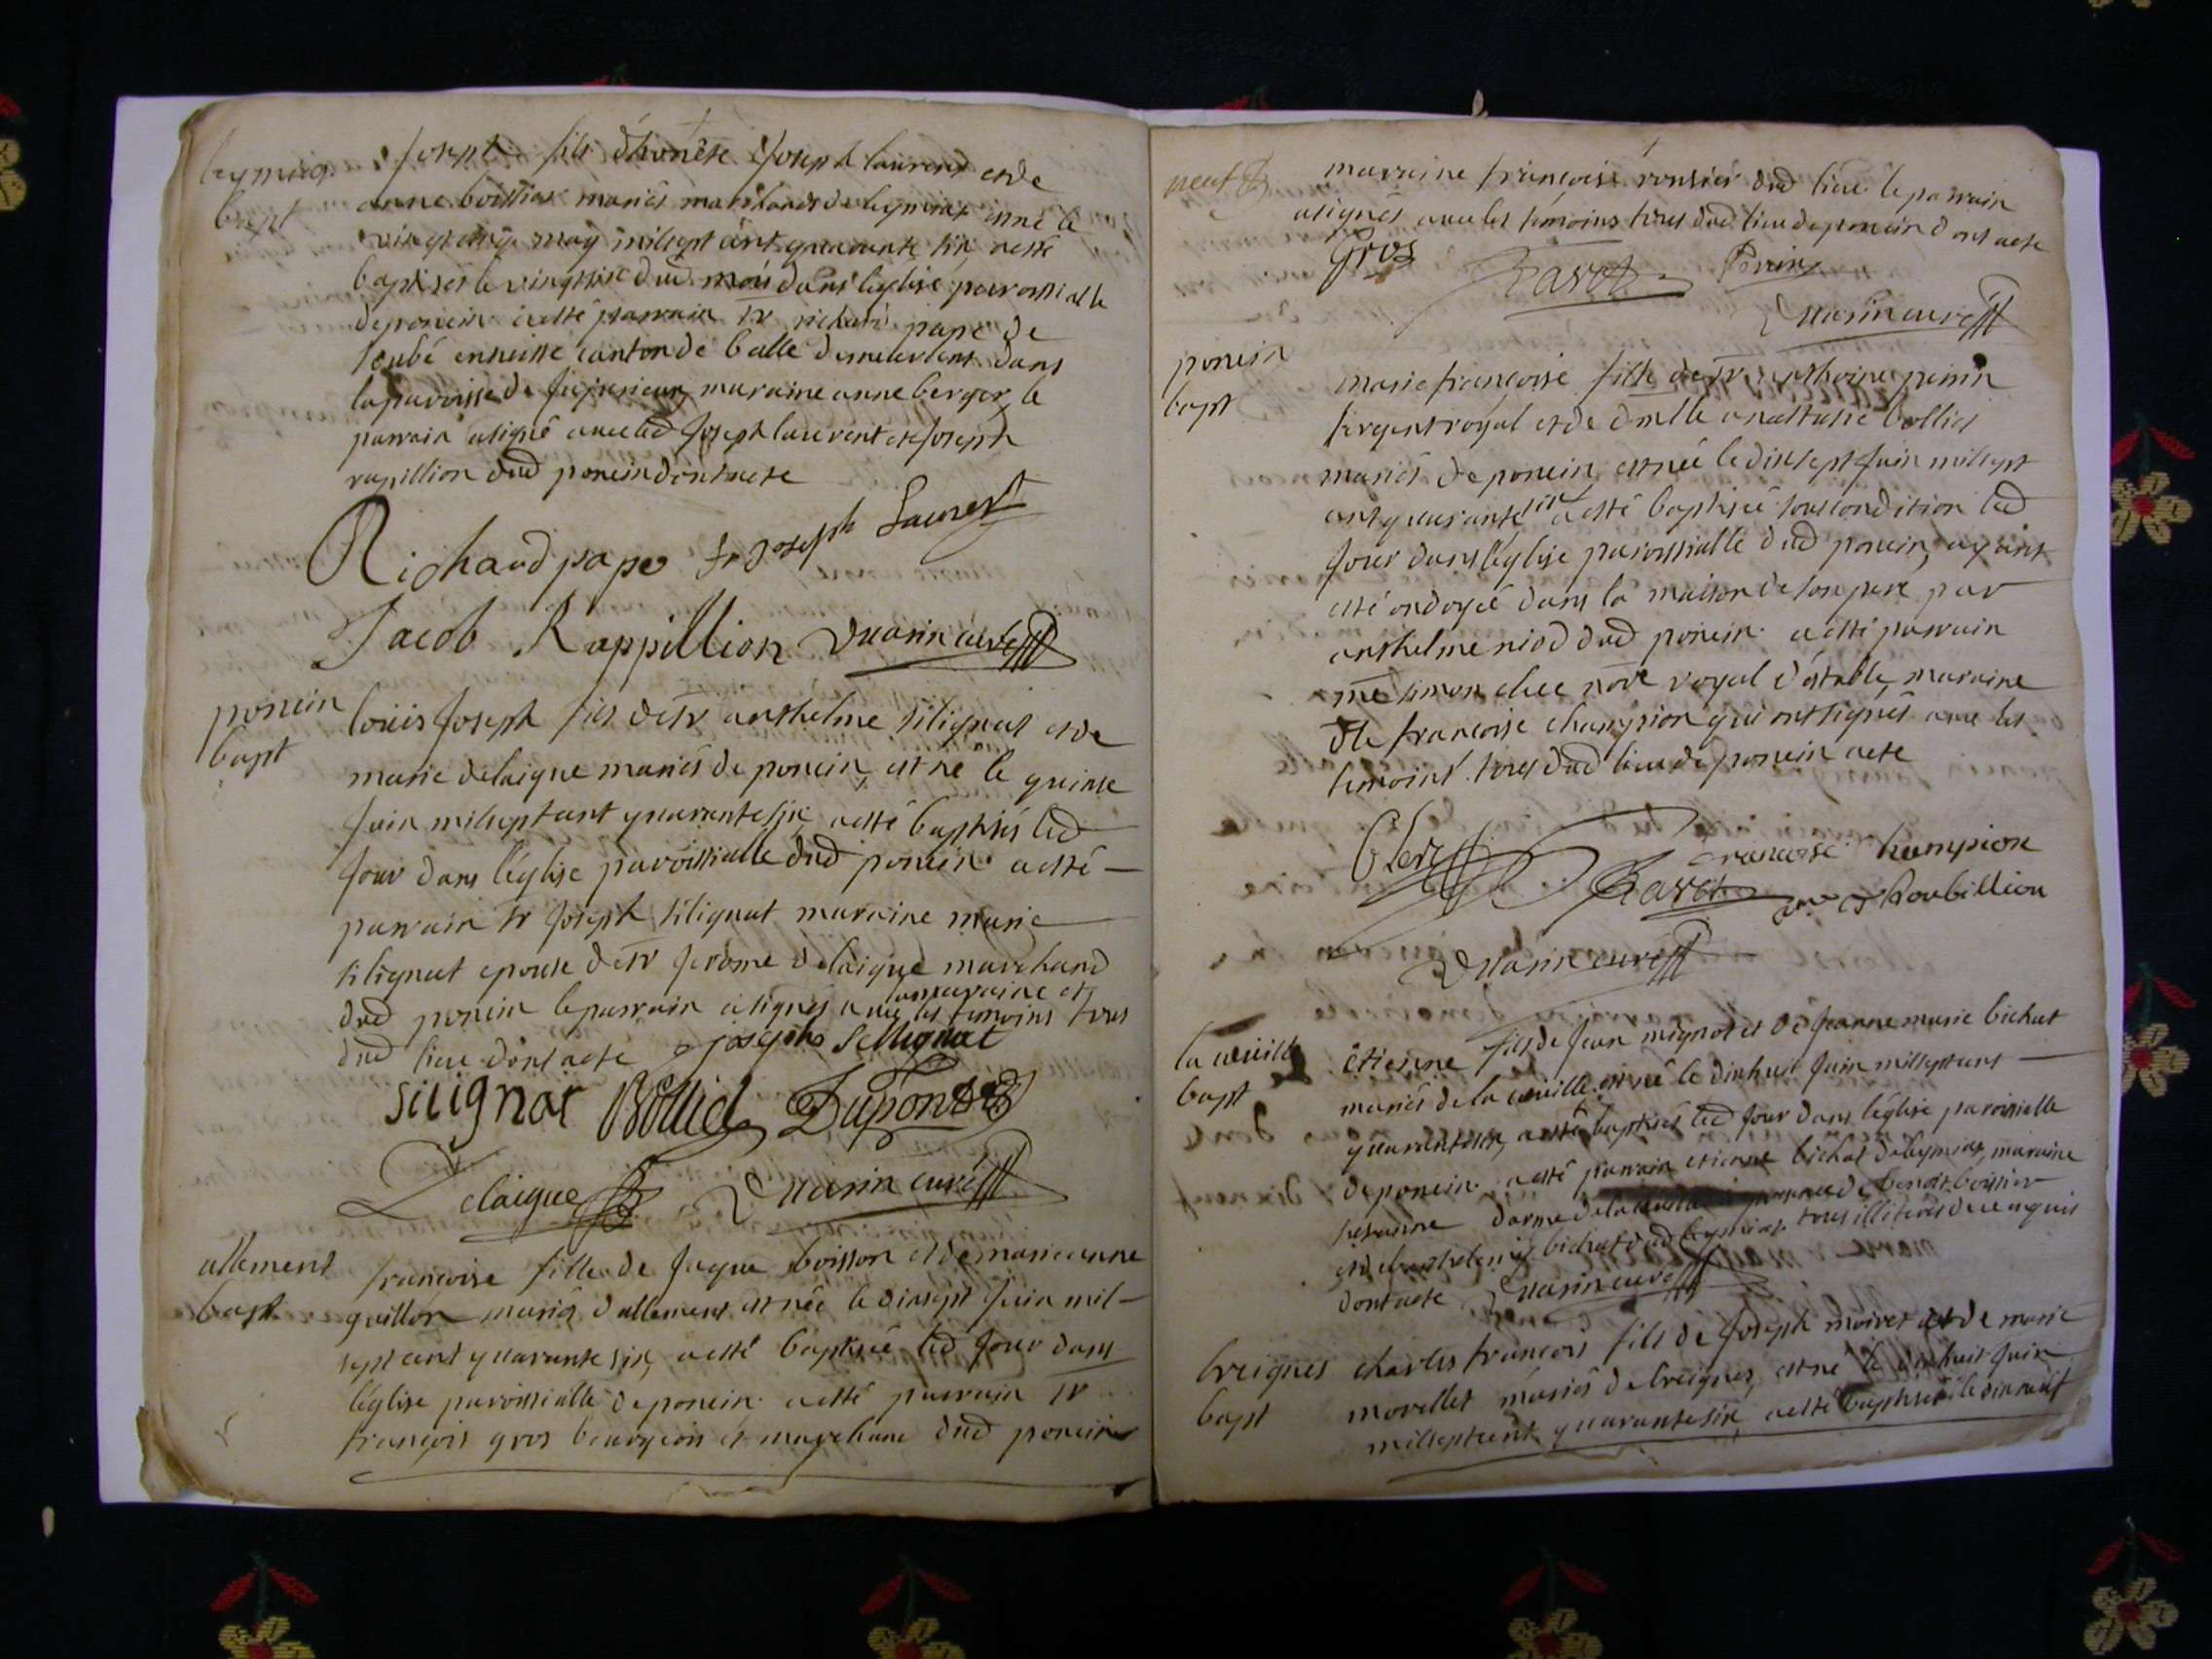 leymiaz
bapt
Joseph fils d'honète Joseph laurent et de
anne boissier mariés marchands de leymiaz est né le
vingt cinq may mil sept cent quarante six a esté
baptisés le vingt six dud mois dans l'église paroissialle
de poncin a esté parrain sr richard pape de
en suisse canton de balle demeurant dans
la paroisse de Jujurieux, maraine anne berger, le
parrain a signé avec led Joseph laurent et Joseph
rapillion dud poncin dont acte
Richard pape fr Joseph Laurent
Jacob Rappillion Duarin curé
poncin
bapt
loüis Joseph fils de sr anthelme silignat et de
marie delaigue mariés de poncin, est né le quinse
Juin mil sept cent quarante six a esté baptisés led
Jour dans l'église paroissialle dud poncin a esté
parrain sr Joseph silignat maraine marie
silignat epouse de sr Jerôme delaigue marchand
la maraine et
dud poncin le parrain a signés avec les temoins tous
dud lieu dont acte joseph Sellignat
silignat Bollied Dupont
Delaigue Duarin curé
allement
bapt
francoise fille de Jaque boisson et de marie anne
guillon mariés d'allement est née le dix sept Juin mil
sept cent quarante six, a esté baptisée led Jour dans
l'église paroissialle de poncin a esté parrain sr
françois gros bourgeois et marchand dud poncin
neuf
maraine françoise rousier dud lieu le parrain
a signés avec les temoins tous dud lieu de poncin dont acte
Gros Ravet Perrin
Duarin curé
poncin
bapt
marie francoise fille de sr anthoine perrin
sergent royal et de dmlle anastasie bollied
mariés de poncin, est née le dix sept Juin mil sept
cent quarante six a esté baptisée sous condition led
Jour dans l'église paroissialle dud poncin, ayant
esté ondoyée dans la maison de son pere par
anthelme niod dud poncin a esté parrain
me simon clerc nore royal d'estable, maraine
dlle francoise champion qui ont signés avec les
temoins tous dud lieu de poncin acte
Clerc francoise champion
Ravet Roubillion
Duarin curé
la cueille
bapt
étienne fils de Jean mignot et de Jeanne marie bichat
mariés de la cueille est né le dix huit Juin mil sept cent
quarante six, a esté baptisés led Jour dans l'église paroissialle
de poncin a esté parrain etienne bichat de leymiaz, maraine
susanne darme de la cueille presence de benoit boissier
et d'anthelme bichat dud leymiaz tous illiterés de ce enquis
dont acte Duarin curé
breignes
bapt
charles francois fils de Joseph moiret et de marie
morellet mariés de breignes, est né le dix huit Juin
mil sept cent quarante six a esté baptisés le dix neuf